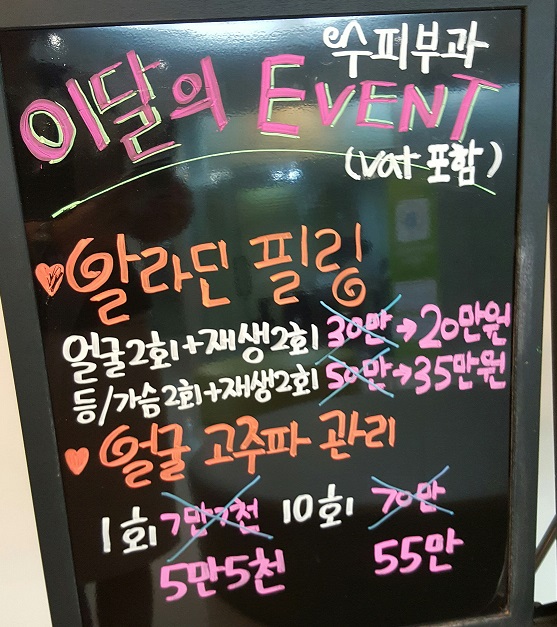 수피부과
이달의 EVENT
(vat 포함)
알라딘 필링
얼굴2회+재생2회 30만→20만원
등/가슴2회+재생2회 50만→35만원
얼굴 고주파 관리
1회 7만7천 10회 70만
5만5천 55만